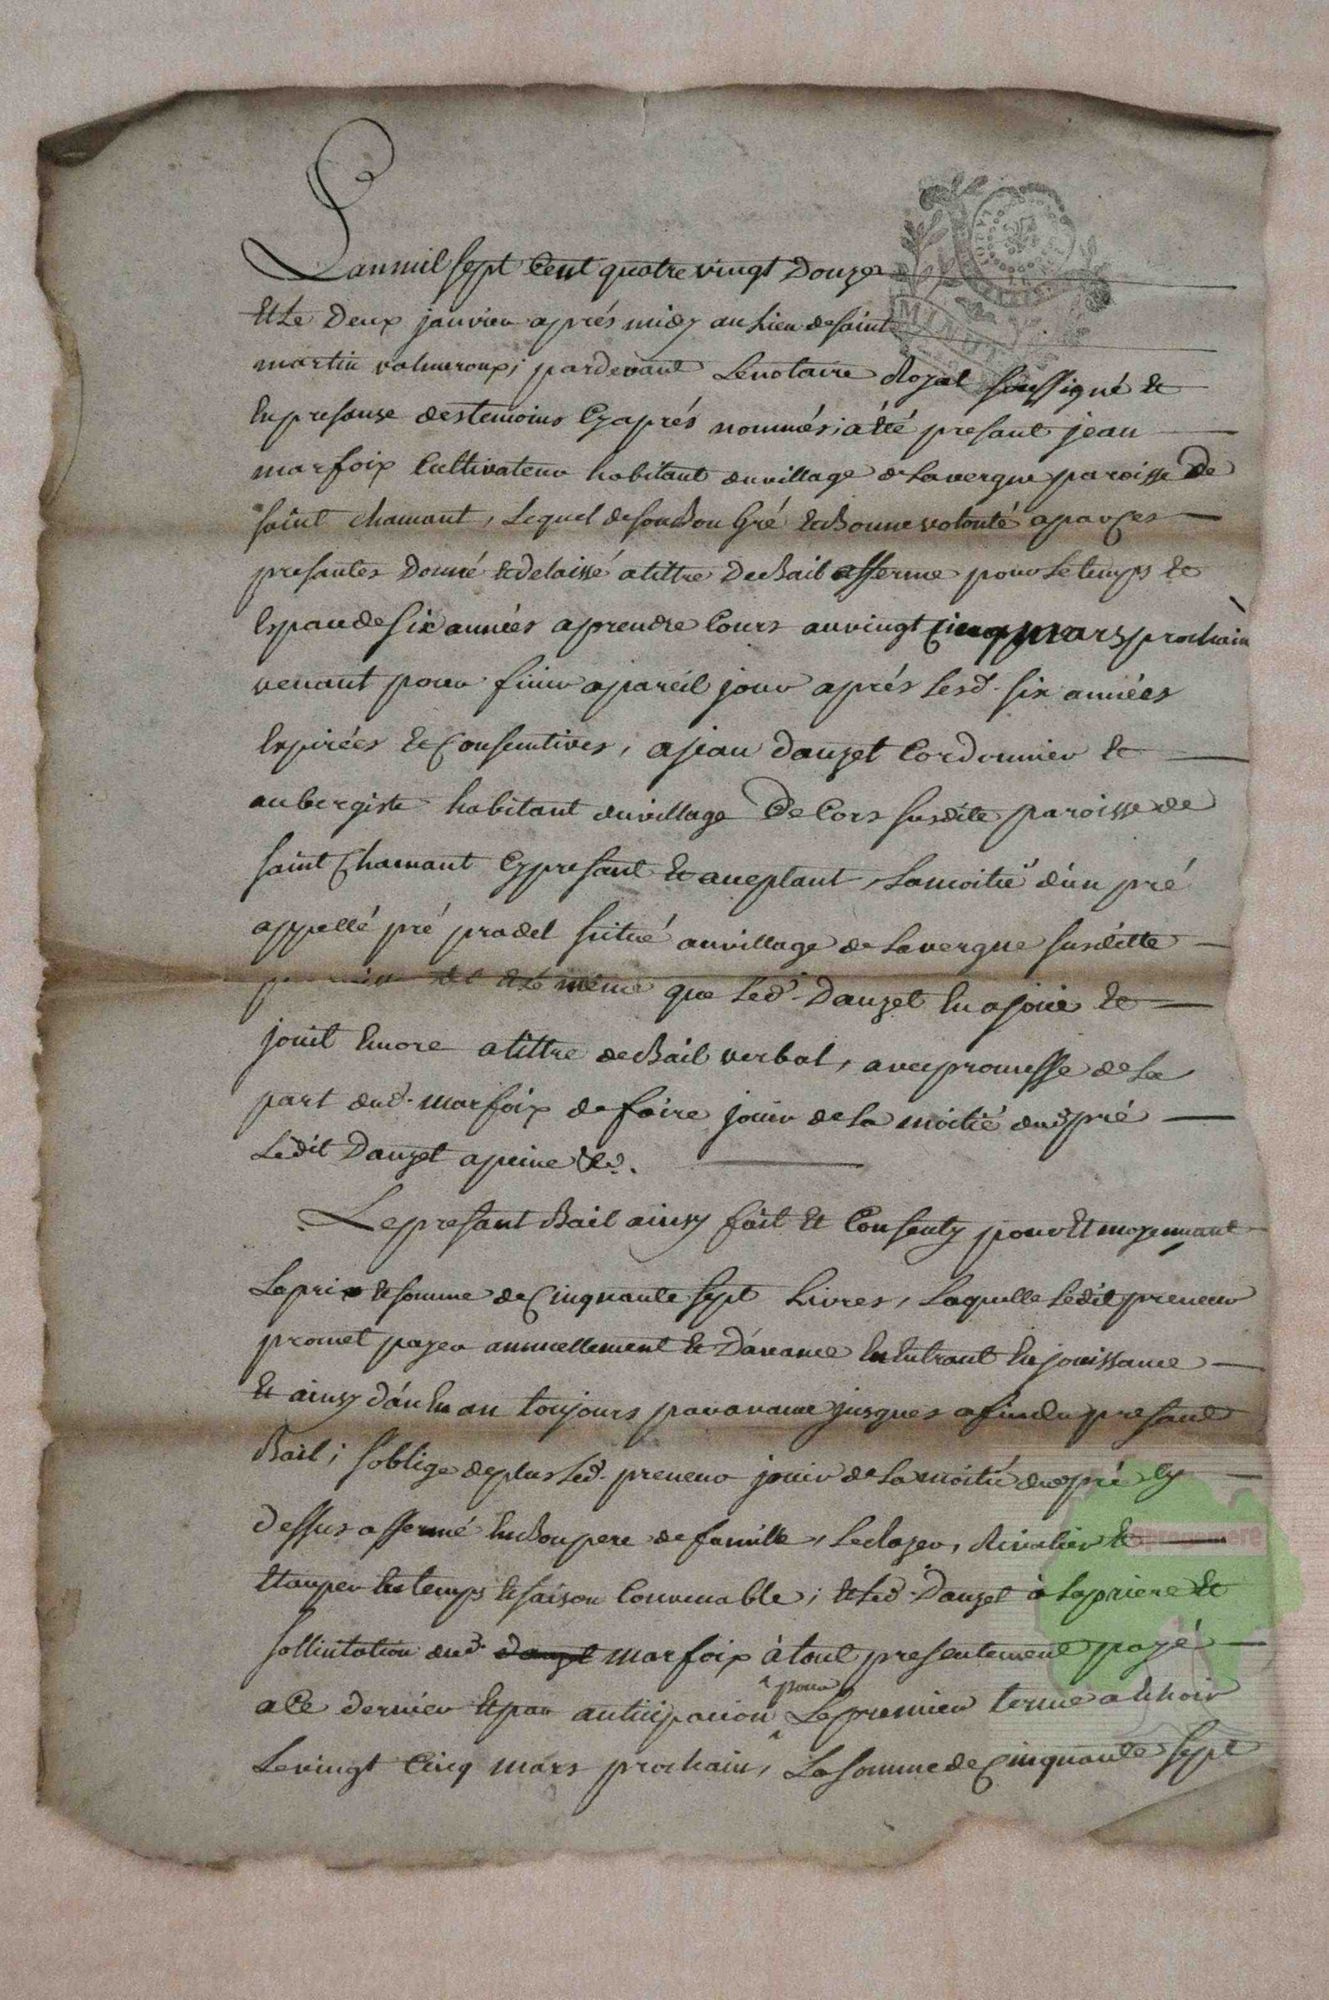 L'an mil sept Cent quatre vingt Douze
Et le Deux janvier aprés midy au Lieu de saint
martin valmeroux; pardevant Le notaire Royal soussigné et
En presanse des temoins Cy aprés nommés; a été presant jean
marfoix Cultivateur habitant du village de Lavergne paroisse De
saint chamant, Lequel de son Bon Gré et Bonne volonté a par Ces
presantes Donné et delaissé a tittre De Bail afferme pour Le temps et
Espau de six années a prendre Cours au vingt Cinq mars prochain
venant pour finir a pareil jour aprés Lesd. six années
Expirées et Consecutives, a jean Dauzet Cordonnier et
aubergiste habitant du village De Cors susdite paroisse de
saint Chamant Cy presant et acceptant, La moitié d'un pré
appellé pré pradel scitué au village de Lavergne susditte
et de même que Led. Dauzet En a joui et
jouit Encore a tittre de Bail verbal, avec promesse de La
part dud. marfoix de faire jouir de La moitié dud. pré
Ledit Dauzet a peine &c.
Le presant Bail ainsy fait et Consenty pour Et moyennant
La prix et somme de Cinquante sept Livres, Laquelle Ledit preneur
promet payer annuellement et D'avance En Entrant En jouissance
Et ainsy d'an En an toujours par avance jusques a fin du presant
Bail; s'oblige de plus Led. preneur jouir de La moitié dud. pré Cy
dessus affermé En Bon pere de famille, Le clozer, Rivalier et
Etauper En temps et saison Convenable; et Led. Dauzet à La priere et
sollicitation dud. Dauzet marfoix à tout presentement payé
a Ce dernier Et par anticipacion pour Le premier terme a Echoir
Le vingt Cinq mars prochain, La somme de Cinquante sept
MINUT
apreommere